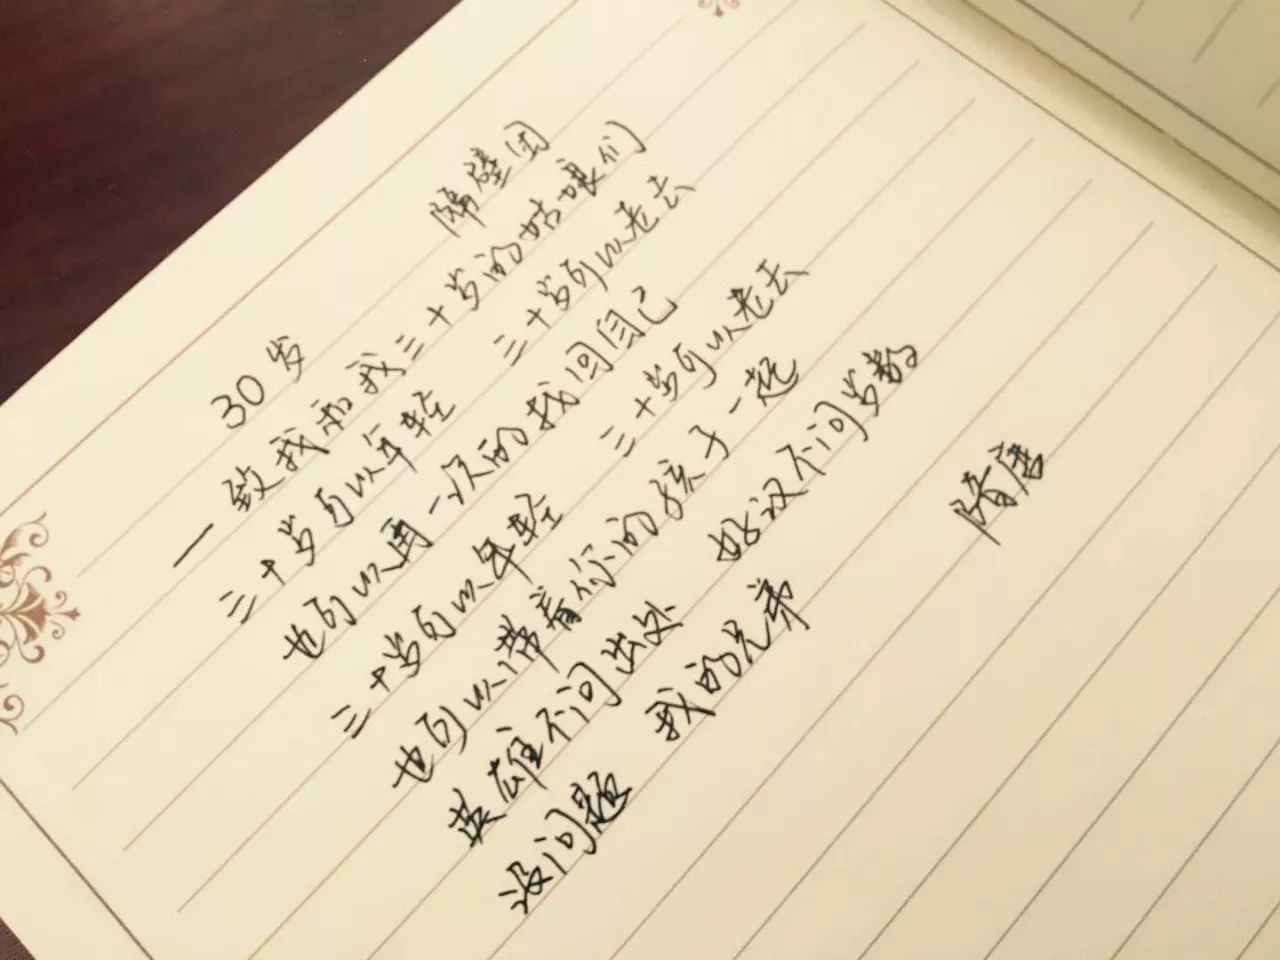 30岁 隔壁团
—致我和我三十岁的姑娘们
三十岁可以年轻 三十岁可以老去
也可以再一次的找回自己
三十岁可以年轻 三十岁可以老去
也可以带着你的孩子一起
英雄不问出处 好汉不问岁数
没问题 我的兄弟
隋唐